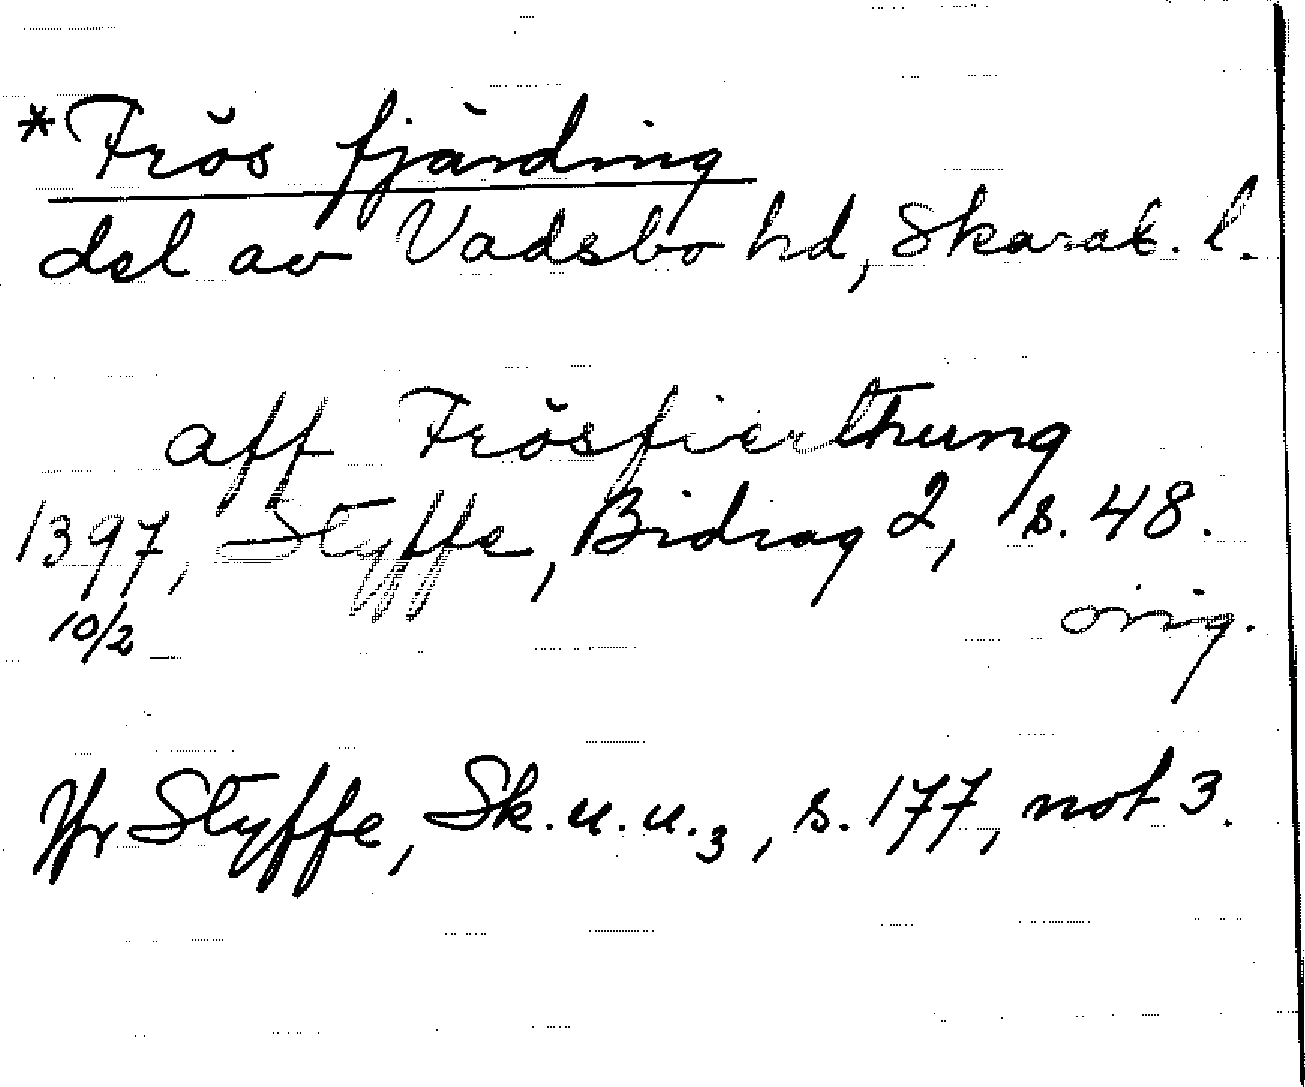 *Frös fjärding
del av Vadsbo hd, Skarab. l.
aff Frösfierthung
1397, Styffe, Bidrag 2, s. 48.
10/2 orig.
Jfr Styffe, Sk.u.u.3, s. 177, not 3.